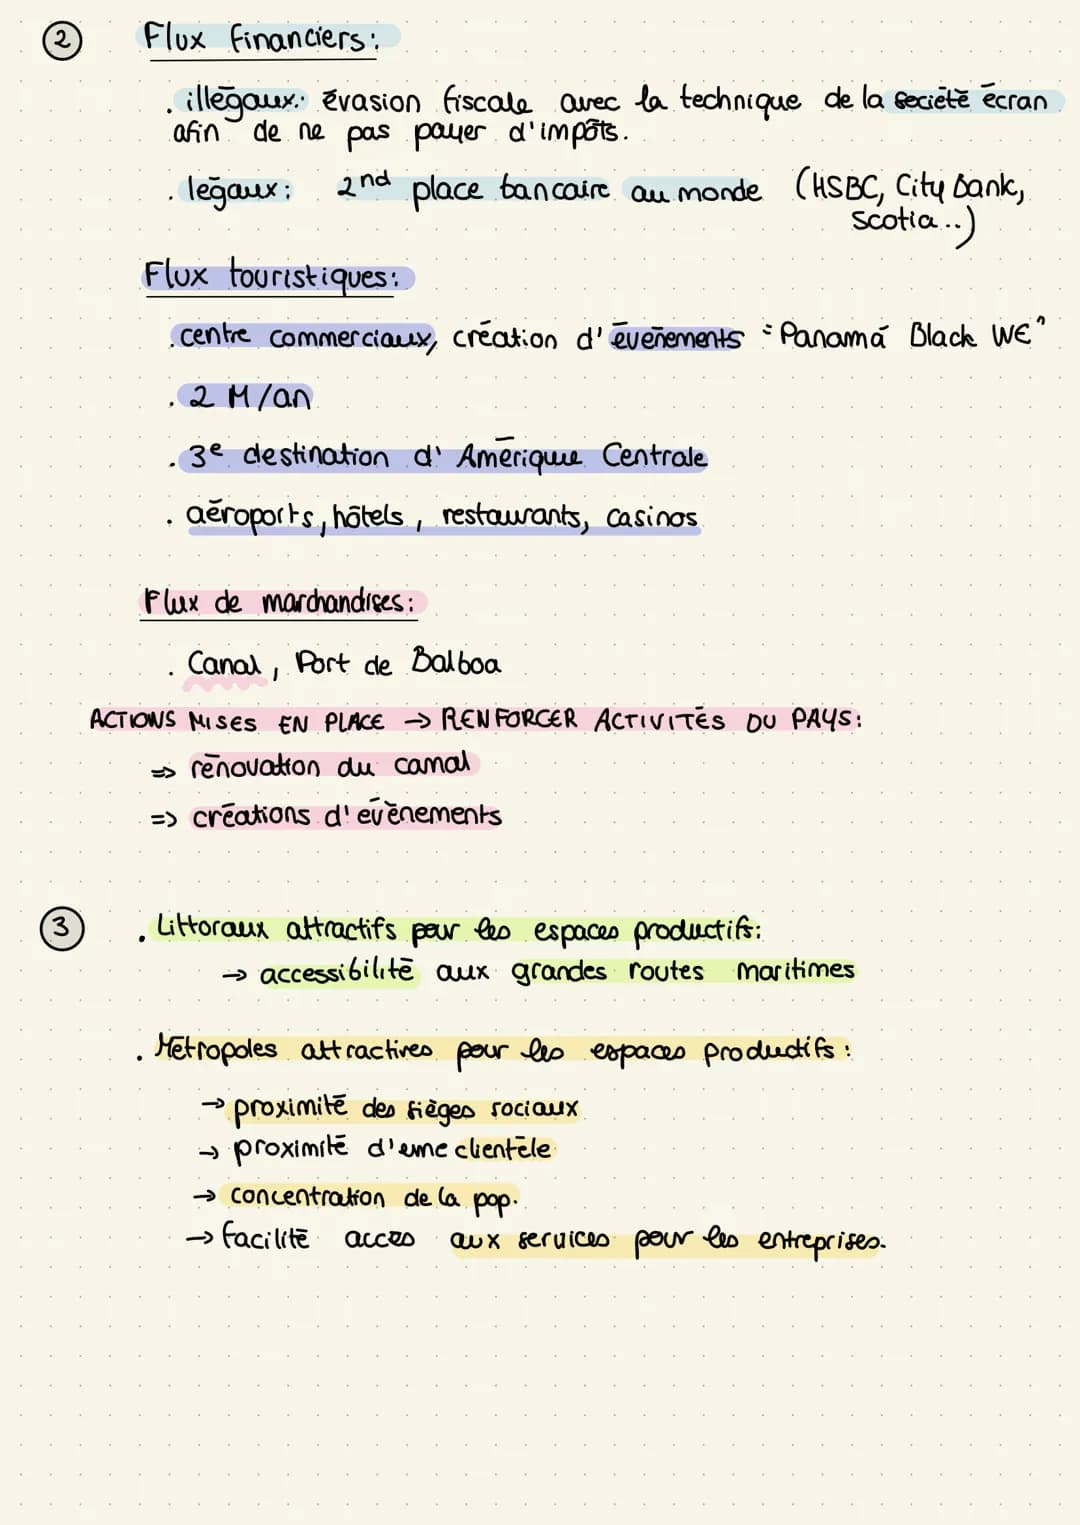 2 Flux financiers:
. illégaux: évasion fiscale avec la technique de la société écran
afin de ne pas payer d'impôts.
. légaux: 2nd place bancaire au monde (HSBC, City Bank,
Scotia..)
Flux touristiques:
. centre commerciaux, création d'évenements "Panamá Black WE"
. 2 M/an
. 3e destination d'Amérique Centrale
. aéroports, hôtels, restaurants, casinos
Flux de marchandises:
. Canal, Port de Balboa
ACTIONS MISES EN PLACE → RENFORCER ACTIVITÉS DU PAYS:
=> rénovation du canal
=> créations d'évènements
3 . Littoraux attractifs pour les espaces productifs:
→ accessibilité aux grandes routes maritimes
. Métropoles attractives pour les espaces productifs:
→ proximité des sièges sociaux
→ proximité d'une clientèle
→ concentration de la pop.
→ facilité accès aux services pour les entreprises.